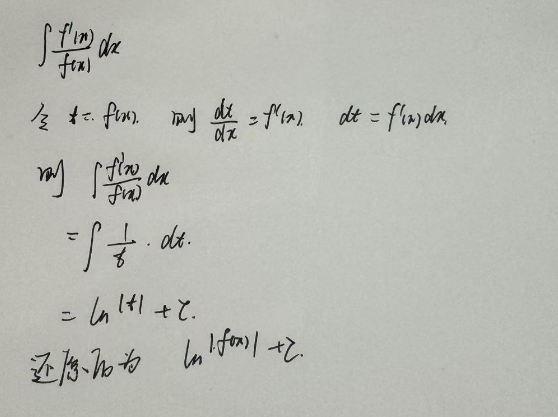 ∫ f'(x)/f(x) dx
令 t = f(x). 则 dt/dx = f'(x). dt = f'(x)dx.
则 ∫ f'(x)/f(x) dx
= ∫ 1/t · dt.
= ln|t| + C.
还原为 ln|f(x)| + C.